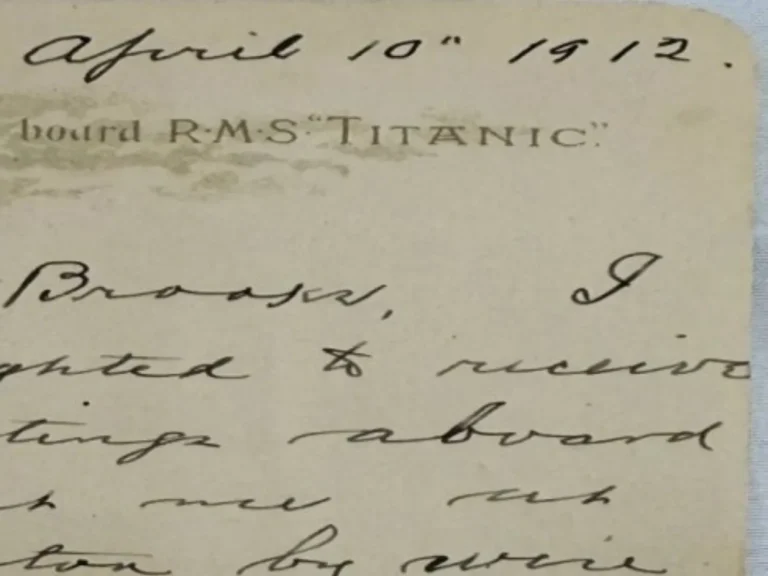 April 10" 1912.
board R·M·S "TITANIC."
Brooks, I
ghted to receive
tings aboard
h me at
ton by wire